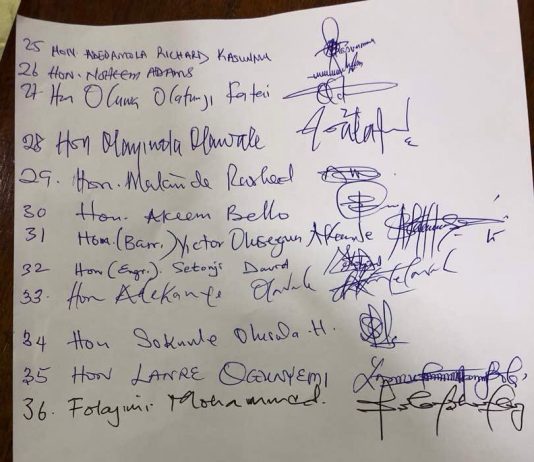 25 HON ADEDAMOLA RICHARD KASUNMU
26 HON. NOHEEM ADAMS
27 Hon Oluwa Olatunji Fatai
28 Hon Olayinwola Olawale
29. Hon. Makinde Rasheed
30 Hon. Akeem Bello
31 Hon. (Barr.) Victor Olusegun Akande
32 Hon (Engr). Setonji David
33. Hon Adekanye Olawale
34 Hon Sokunle Olusola .H.
35 HON LANRE OGUNYEMI
36. Folajimi Mohammed.